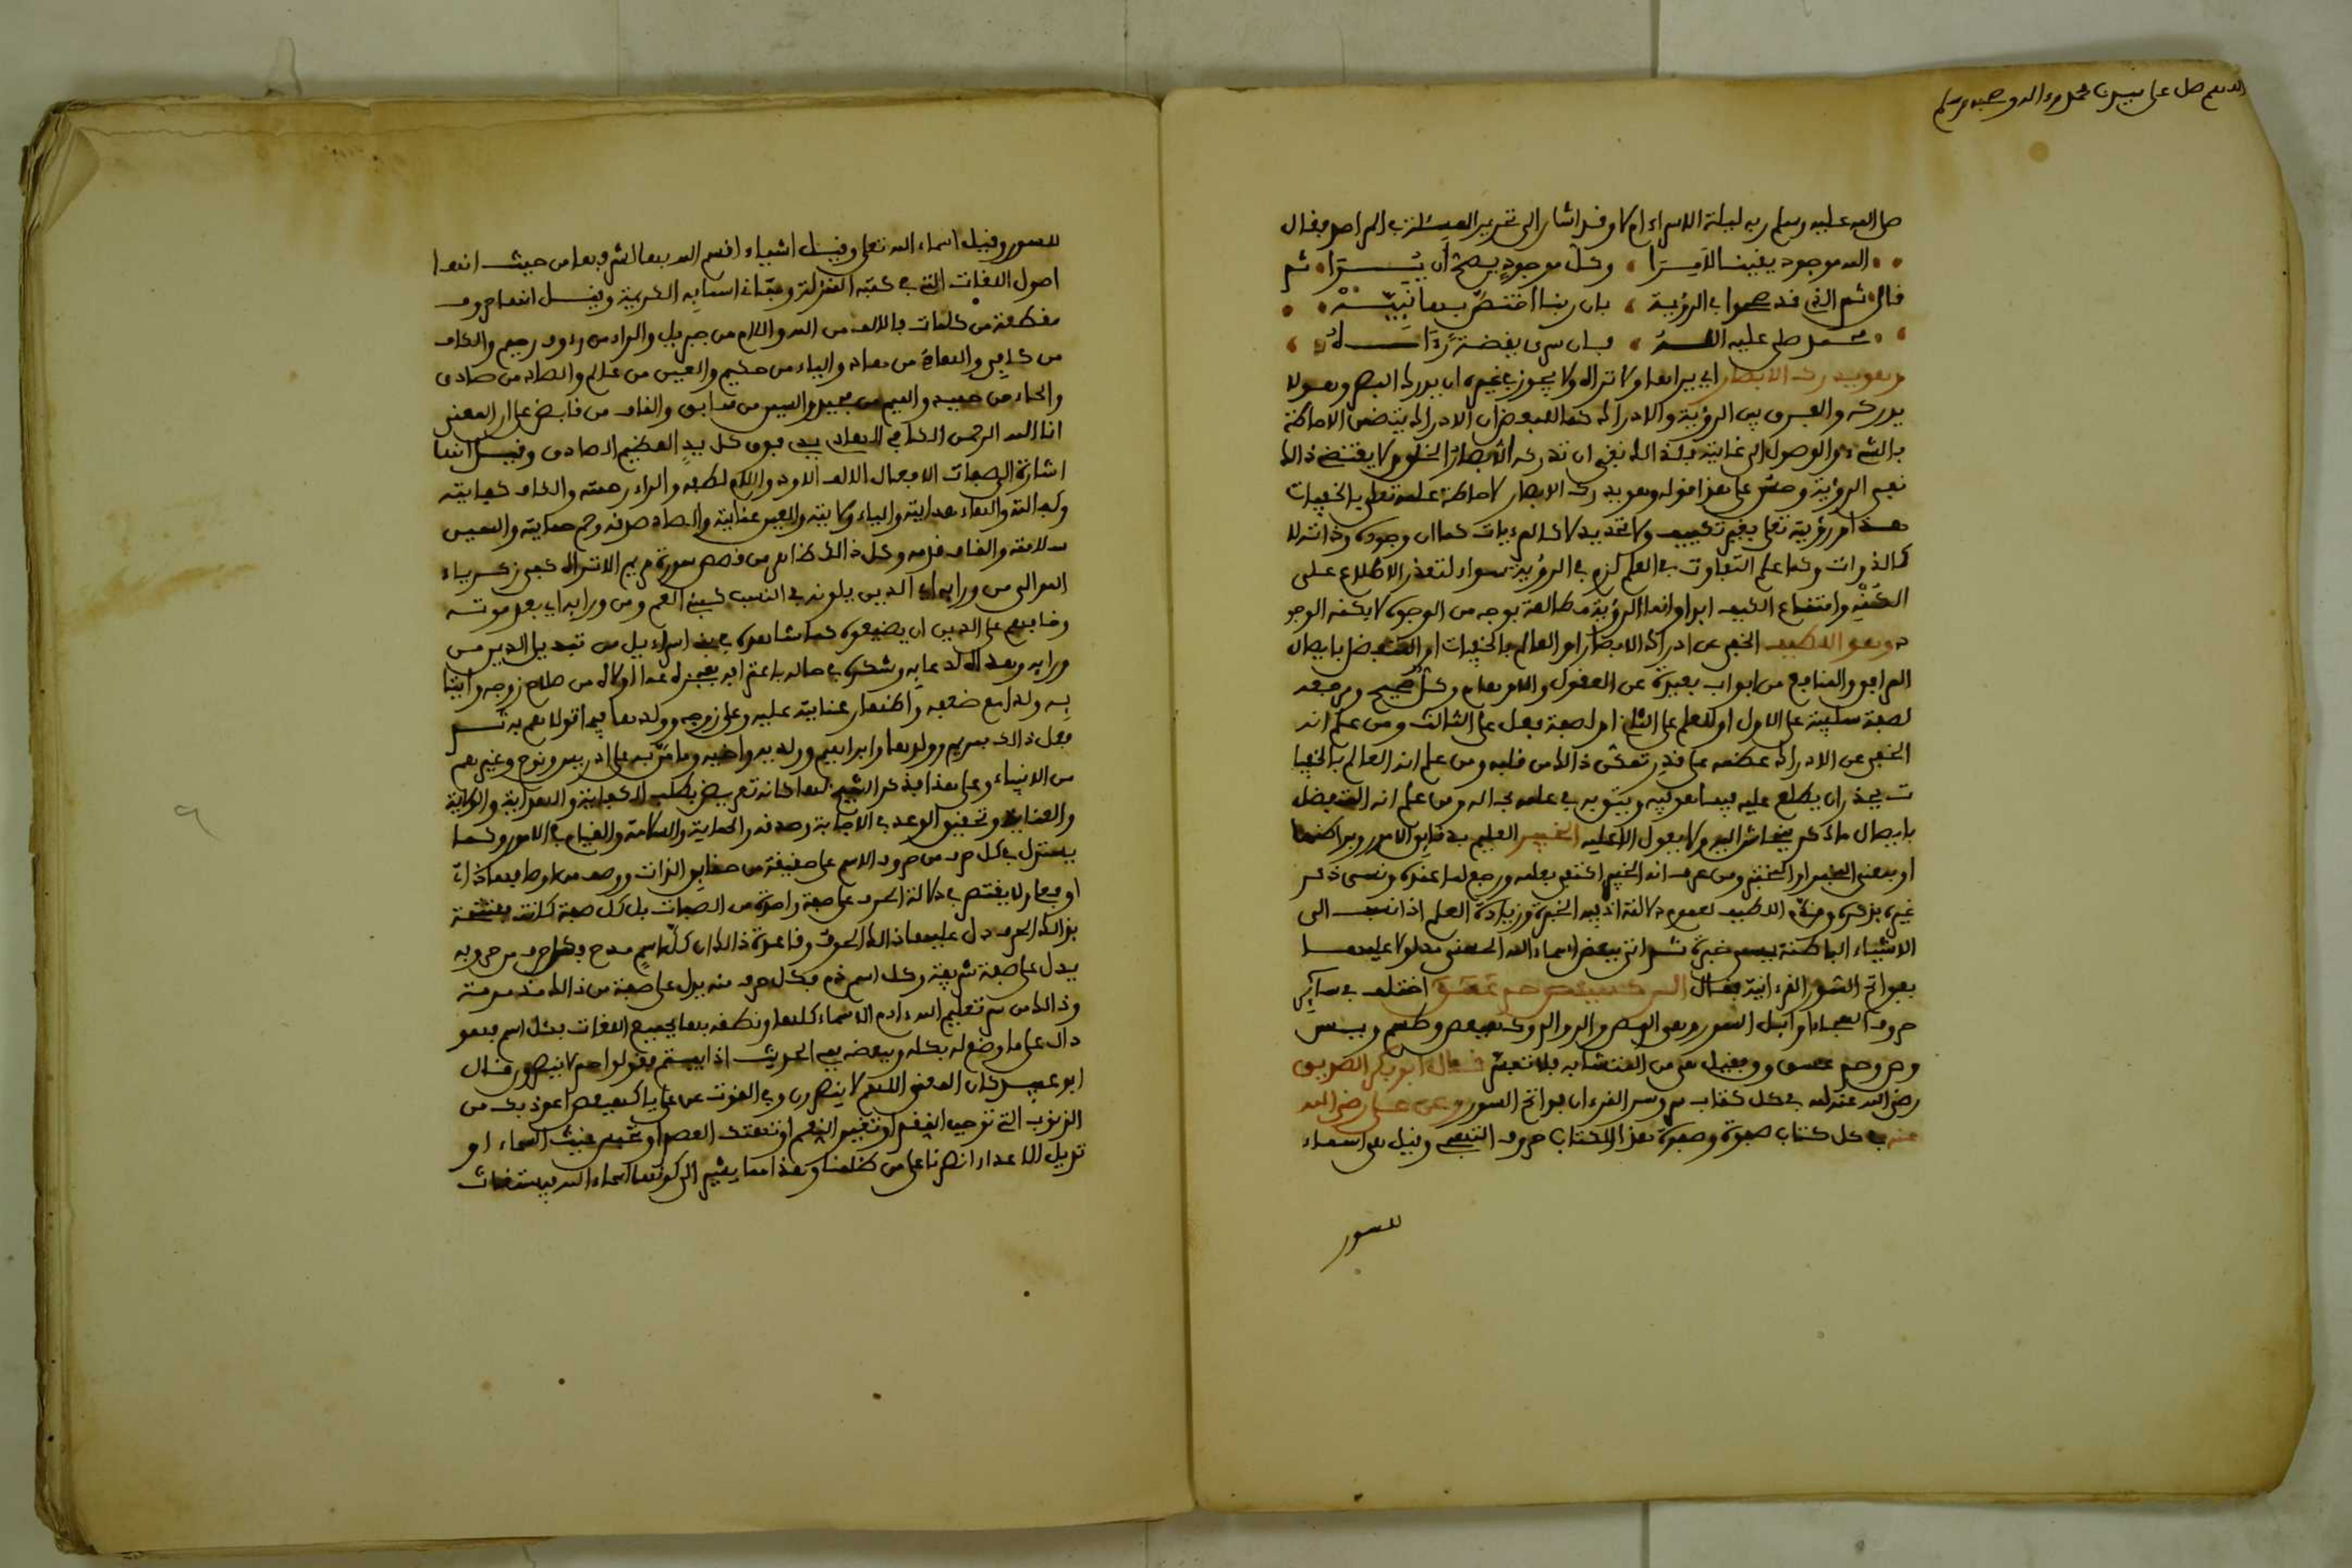 اللهم صل على سيدنا محمد وءاله وصحبه وسلم
صلى الله عليه وسلم ربه ليلة الاسراء ام لا وقد اشار الى تحرير المسئلة في المراصد فقال
الله موجود يقينا لا مرا وكل موجود يصح أن يرا ثم
قال ثم الذي قد صححوا في الرؤية بان ربنا اختص بها نبيه
محمد صلى عليه الله
وهو يدرك الابصار اي يراها ولا تراه ولا يجوز في غيره ان يدرك البصر وهو لا
يدركه والفرق بين الرؤية والادراك كما لبعض ان الادراك يتضمن الاحاطة
بالشيء والوصول الى غايته فلذالك نفى ان تدركه الابصار الخلق ولا يقتضي ذالك
نفي الرؤية وحسن على هذا قوله وهو يدرك الابصار لاحاطة علمه تعلى بالخفيات
هذا ورؤيته تعلى بغير تكييف ولا تحديد لا كالمرءيات كما ان وجوده وذاته لا
كالذوات وكما علم التفاوت في العلم كزه في الرؤية سواء لتعذر الاطلاع على
الكنه وامتناع الكيف ابدا وانما الرؤية مطالعة بوجه من الوجوه لا بكنه الوجو
د وهو اللطيف الخفي عن ادراك الابصار او العالم بالخفيات او المتفضل بايصال
المرافق والمنافع من ابواب بعيدة عن العقول والاوهام وكل صحيح ومرجعه
لصفة سلبية على الاول او للعلم على الثاني او لصفة فعل على الثالث ومن علم انه
الخفي عن الادراك عظمه على قدر تمكن ذالك من قلبه ومن علم انه العالم بالخفيا
ت يحذر ان يطلع عليه فيما هو فيه ويثق به في علمه بحاله ومن علم انه المتفضل
بايصال ما ذكر ينحاش اليه ولا يعول الا عليه الخبير العليم بدقايق الامور وبواطنها
او بمعنى المخبر او المختبر ومن عرف انه الخبير اكتفى بعلمه ورجع لما عنده ونسي ذكر
غيره بذكره وقدم اللطيف لعموم دلالته اذ فيه الخبرة وزيادة العلم اذا نسب الى
الاشياء الباطنة يسمى خبرة ثم اتى ببعض اسماء الله الحسنى مدلولا عليها
بفواتح السور القرءانية فقال الر كهيعص حم عسق اختلف في ساير
حروف الهجاء اوايل السور وهي المص والم والر وكهيعص وطسم ويس
وص وحم عسق وق فقيل هي من المتشابه فلا تفسر قال ابو بكر الصديق
رضي الله عنه لله في كل كتاب سر وسر القرءان فواتح السور وعن علي رضي الله
عنه في كل كتاب صفوة وصفوة هذا الكتاب حروف التهجي وقيل هي اسماء
للسور
للسور وقيل اسماء الله تعلى وقيل اشياء اقسم الله بها لشرفها من حيث انها
اصول اللغات التي في كتبه المنزلة ومباني اسمايه الكريمة وقيل انها حروف
مقطعة من كلمات فالالف من الله واللام من جبريل والراء من رءوف رحيم والكاف
من كافي والهاء من هاد والياء من حكيم والعين من عالم والصاد من صادق
والحاء من حميد والميم من مجيد والسين من سابق والقاف من قابض على ان المعنى
انا الله الرحمن الكافي الهادي يدي فوق كل يد العظيم الصادق وقيل انها
اشارة الى صفات الافعال الالف الاوه واللام لطفه والراء رحمته والكاف كفايته
وكفالته والهاء هدايته والياء ولايته والعين عنايته والصاد صدقه وحم حمايته والسين
سلامته والقاف قربه وكل ذالك ظاهر من قصص سورة مريم الا تراك كيف زكرياء
الموالي من ورايه اي الذين يلونه في النسب كبني العم ومن ورايه اي بعد موته
وخافهم على الدين ان يضيعوه كما شاهده في بني اسراءيل من تبديل الدين من
ورايه وهذا له دعايه وشكره في حاله باعترافه بعجزه عما اولاه من صلاح زوجه واتيا
نه ولدا مع ضعفه واظهار عنايته عليه وعلى زوجه وولده بما فيها قولا نعم به ثم
فعل ذالك بمريم وولدها وابراهيم وولديه واخيه وما من به على ادريس ونوح وغيرهم
من الانبياء وعلى هذا فذكر الشيخ لها كانه تعريض بطلب الكفاية والهداية والولاية
والعناية وتحقيق الوعد في الاجابة وصدقه والحماية والسلامة والقيام في الامور وكما
يستنزل بكل حرف من حروف الاسم على حقيقة من حقايق الذات ووصف من اوصافها ذاتا
او فعلا ولا يختص في دلالة الحرف على صفة واحدة من الصفات بل كل صفة كانت مفتتحة
بذالك الحرف دل عليها ذالك الحرف وقاعدة ذالك ان كل اسم مدح فكل حرف من حروفه
يدل على صفة شريفة وكل اسم ذم فكل حرف منه يدل على صفة من ذالك مذمومة
وذالك من سر تعليم الله ءادم الاسماء كلها ونطقه بها بجميع اللغات بكل اسم فهو
دال على ما وضع له بكله وببعضه ففي الحديث اذا بيتم فقولوا حم لا ينصرون قال
ابو عبيد كان المعنى اللهم لا ينصرون وفي القوت عن علي يا كهيعص اعوذ بك من
الذنوب التي توجب النقم او تغير النعم او تهتك العصم او تحبس غيث السماء او
تديل الاعداء انصرنا على من ظلمنا وهذا مما يشير الى كونها اسماء الله فيستغاث